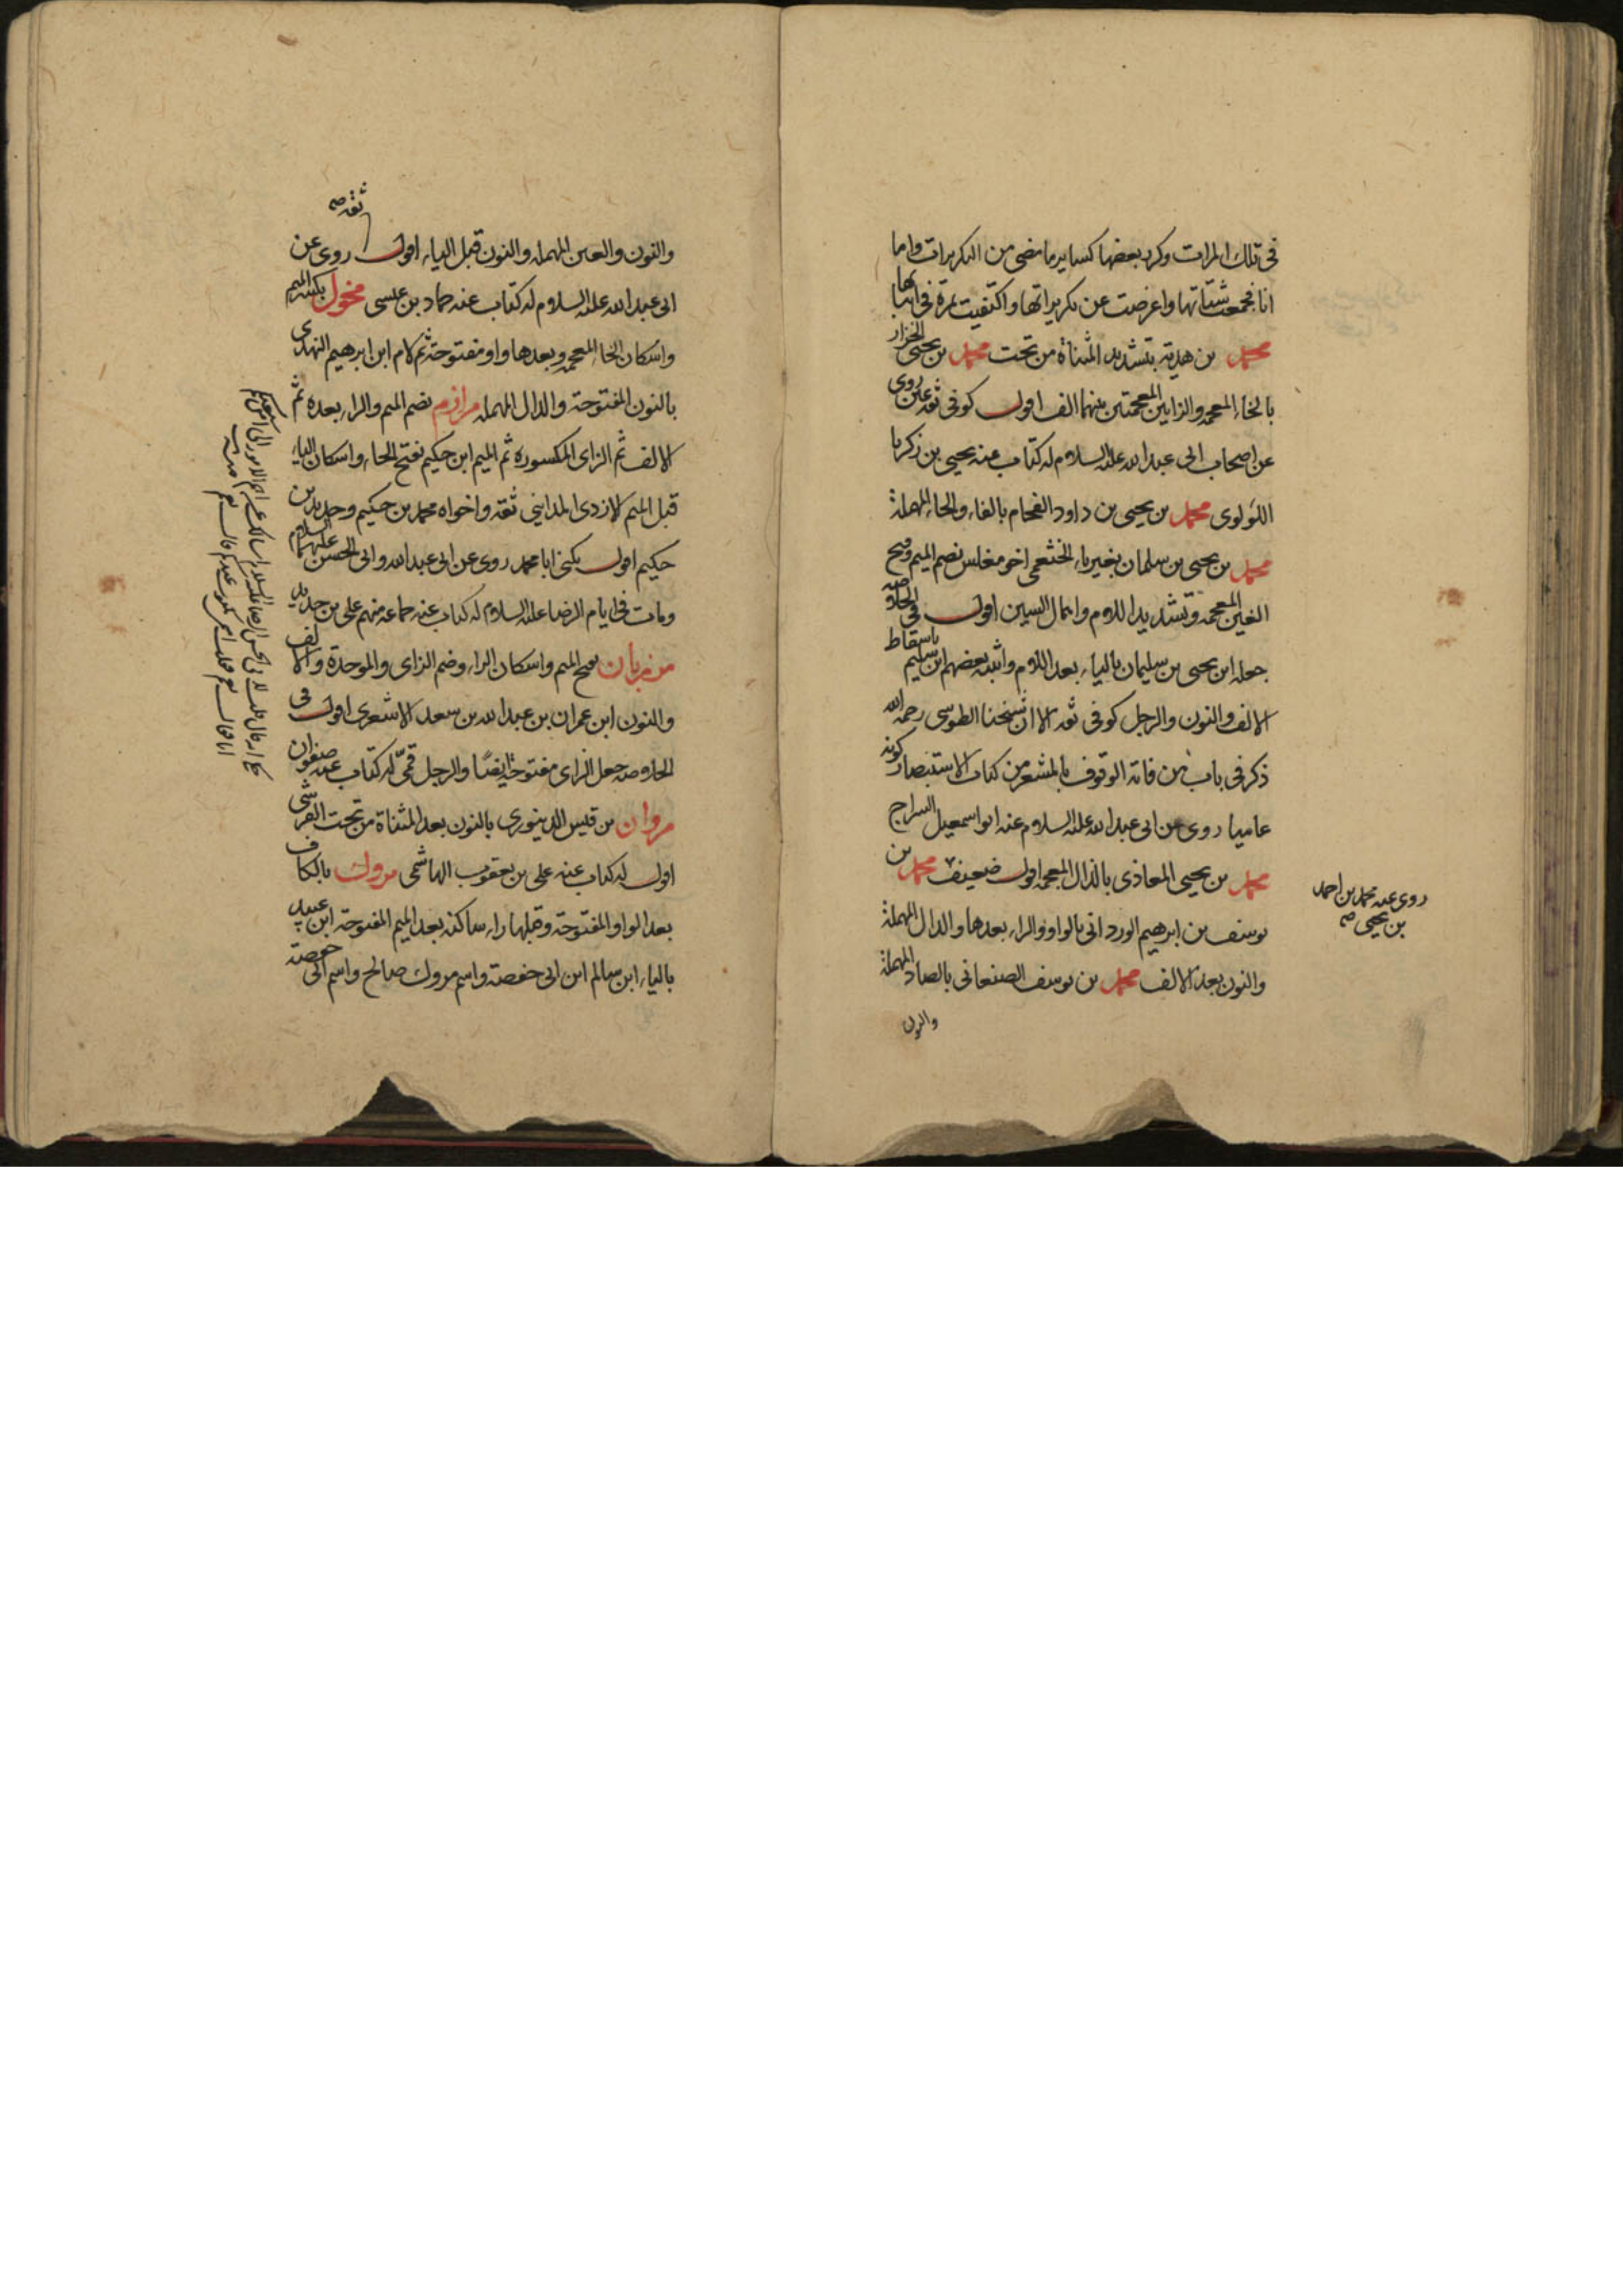 في تلك المرات وكرر بعضها كساير ما مضى من التكريرات واما
انا فجمعت شتاتها واعرضت عن تكريراتها واكتفيت بمرة في اثباتها
محمد بن هدية بتشديد المثناة من تحت محمد بن يحيى الخزاز
بالخاء المعجمة والزايين المعجمتين بينهما الف اقول كوفي ثقة عين روى
عن اصحاب ابي عبد الله عليه السلام له كتاب عنه يحيى بن زكريا
اللؤلوى محمد بن يحيى بن داود الفحام بالفاء والحاء المهملة
محمد بن يحيى بن سلمان بغير ياء الخثعمي اخو مغلس بضم الميم وفتح
الغين المعجمة وتشديد اللام واهمال السين اقول في الخلاصة
جعله ابن يحيى بن سليمان بالياء بعد اللام واثبته بعضهم ابن سليم باسقاط
الالف والنون والرجل كوفي ثقة الا ان شيخنا الطوسي رحمه الله
ذكر في باب من فاته الوقوف بالمشعر من كتاب الاستبصار كونه
عاميا روى عن ابي عبد الله عليه السلام عنه ابو اسمعيل السراج
محمد بن يحيى المعاذى بالذال المعجمة اقول ضعيف محمد بن
يوسف بن ابرهيم الورداني بالواو والراء بعدها والدال المهملة
والنون بعد الالف محمد بن يوسف الصنعاني بالصاد المهملة
والنون
روى عنه محمد بن احمد
بن يحيى صه
ثقة صه
والنون والعين المهملة والنون قبل الياء اقول روى عن
ابي عبد الله عليه السلام له كتاب عنه حماد بن عيسى مخول بكسر الميم
واسكان الخاء المعجمة وبعدها واو مفتوحة ثم لام ابن ابرهيم النهدى
بالنون المفتوحة والدال المهملة مرازم بضم الميم والراء بعده ثم
الالف ثم الزاى المكسورة ثم الميم ابن حكيم بفتح الحاء واسكان الياء
قبل الميم الازدى المدايني ثقة واخواه محمد بن حكيم وحديد بن
حكيم اقول يكنى ابا محمد روى عن ابي عبد الله وابي الحسن عليهما السلام
ومات في ايام الرضا عليه السلام له كتاب عنه جماعة منهم علي بن حديد
مرزبان بفتح الميم واسكان الراء وضم الزاى والموحدة والالف
والنون ابن عمران بن عبد الله بن سعد الاشعرى اقول في
الخلاصة جعل الزاى مفتوحة ايضا والرجل قمي له كتاب عنه صفوان
مروان بن قيس الدينورى بالنون بعد المثناة من تحت القرشي
اقول له كتاب عنه علي بن يعقوب الهاشمى مروك بالكاف
بعد الواو المفتوحة وقبلها راء ساكنة بعد الميم المفتوحة ابن عبيد
بالياء ابن سالم ابن ابي حفصة واسم مروك صالح واسم ابي حفصة